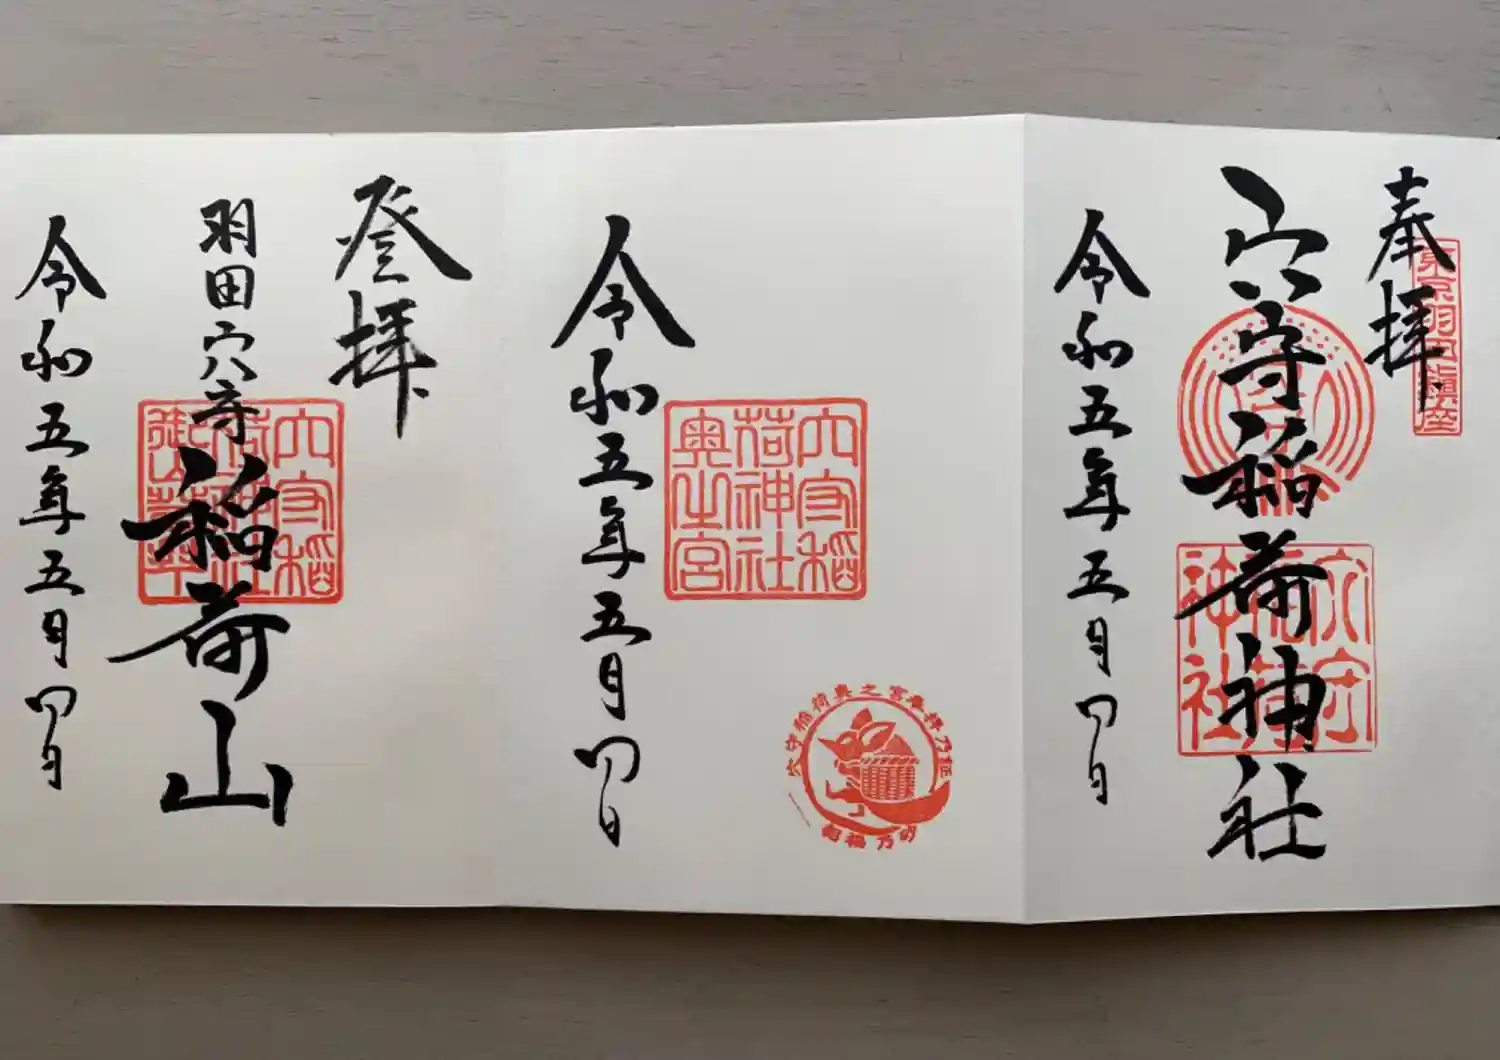 奉拝
東京羽田鎮座
穴守稲荷神社
穴守稲荷神社
令和五年五月四日
穴守稲
荷神社
奥之宮
穴守稲荷奥之宮奉拝乃証
令和五年五月四日
登拝
羽田穴守
稲荷山
穴守稲
荷神社
令和五年五月四日